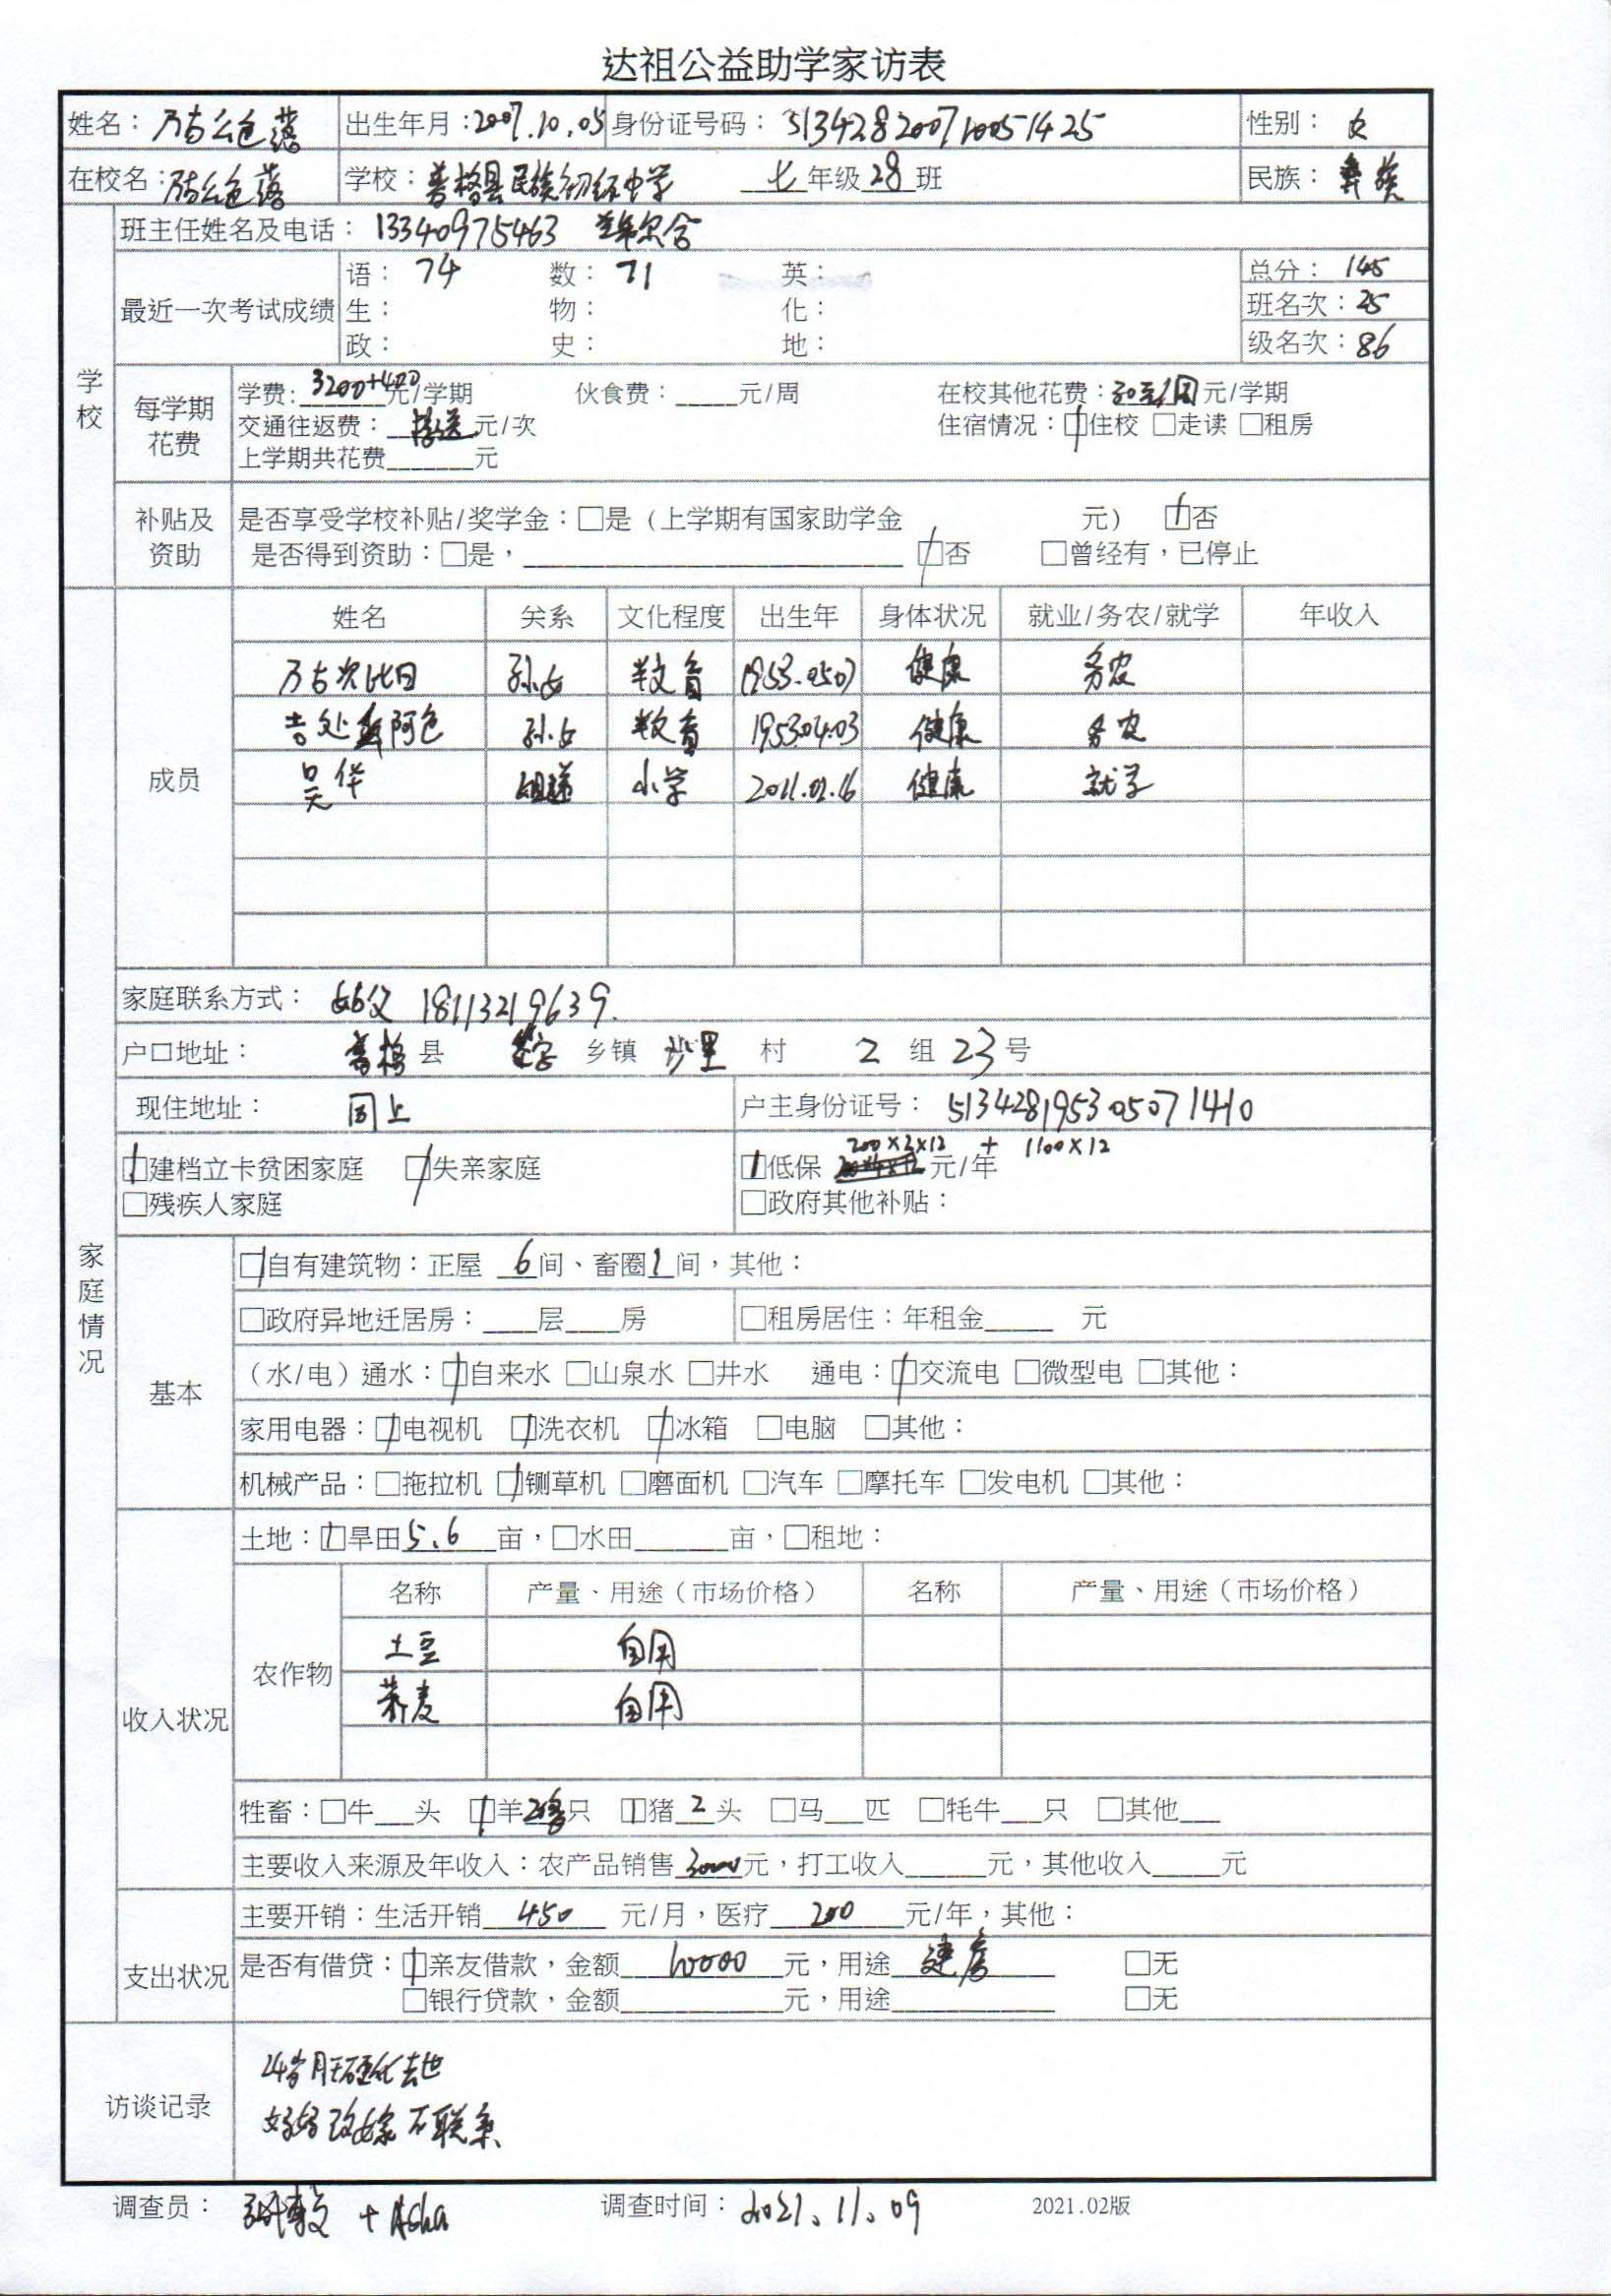 达祖公益助学家访表
姓名： 乃古么色落 出生年月：2007.10.05 身份证号码： 513428200710051425 性别： 女
在校名： 乃古么色落 学校：普格县民族初级中学 七 年级 28 班 民族： 彝族
班主任姓名及电话： 13340975463
学校
最近一次考试成绩 语： 74 数： 71 英： 总分： 145
生： 物： 化： 班名次：25
政： 史： 地： 级名次：86
每学期花费 学费: 3200+400 元/学期 伙食费：____元/周 在校其他花费：30元/周 元/学期
交通往返费： 接送 元/次 住宿情况：☑住校 □走读 □租房
上学期共花费______元
补贴及资助 是否享受学校补贴/奖学金：□是（上学期有国家助学金 元） ☑否
是否得到资助：□是，____________ ☑否 □曾经有，已停止
家庭情况
成员 姓名 关系 文化程度 出生年 身体状况 就业/务农/就学 年收入
乃古次比日 孙女 半文盲 1953.0507 健康 务农
吉处 阿色 孙女 半文盲 1953.04.03 健康 务农
吴华 姐弟 小学 2011.02.16 健康 就学
家庭联系方式： 伯父 18113219639.
户口地址： 普格 县 乡镇 沙里 村 2 组 23 号
现住地址： 同上 户主身份证号： 513428195305071410
☑建档立卡贫困家庭 ☑失亲家庭 ☑低保 200×2×12 元/年 + 1100×12
□残疾人家庭 □政府其他补贴：
基本 ☑自有建筑物：正屋 6 间、畜圈 1 间，其他：
□政府异地迁居房：____层____房 □租房居住：年租金_____ 元
（水/电）通水：☑自来水 □山泉水 □井水 通电：☑交流电 □微型电 □其他：
家用电器：☑电视机 ☑洗衣机 ☑冰箱 □电脑 □其他：
机械产品：□拖拉机 ☑铡草机 □磨面机 □汽车 □摩托车 □发电机 □其他：
收入状况 土地：☑旱田 5.6 亩，□水田______亩，□租地：
农作物 名称 产量、用途（市场价格） 名称 产量、用途（市场价格）
土豆 自用
荞麦 自用
牲畜：□牛___头 ☑羊 只 ☑猪 2 头 □马___匹 □牦牛___只 □其他___
主要收入来源及年收入：农产品销售 3000 元，打工收入_____元，其他收入_____元
支出状况 主要开销：生活开销 450 元/月，医疗 200 元/年，其他：
是否有借贷：☑亲友借款，金额 10000 元，用途 建房 □无
□银行贷款，金额__________元，用途__________ □无
访谈记录 24岁 肝硬化去世
妈妈改嫁不联系
调查员： + Asha 调查时间：2021.11.09 2021.02版